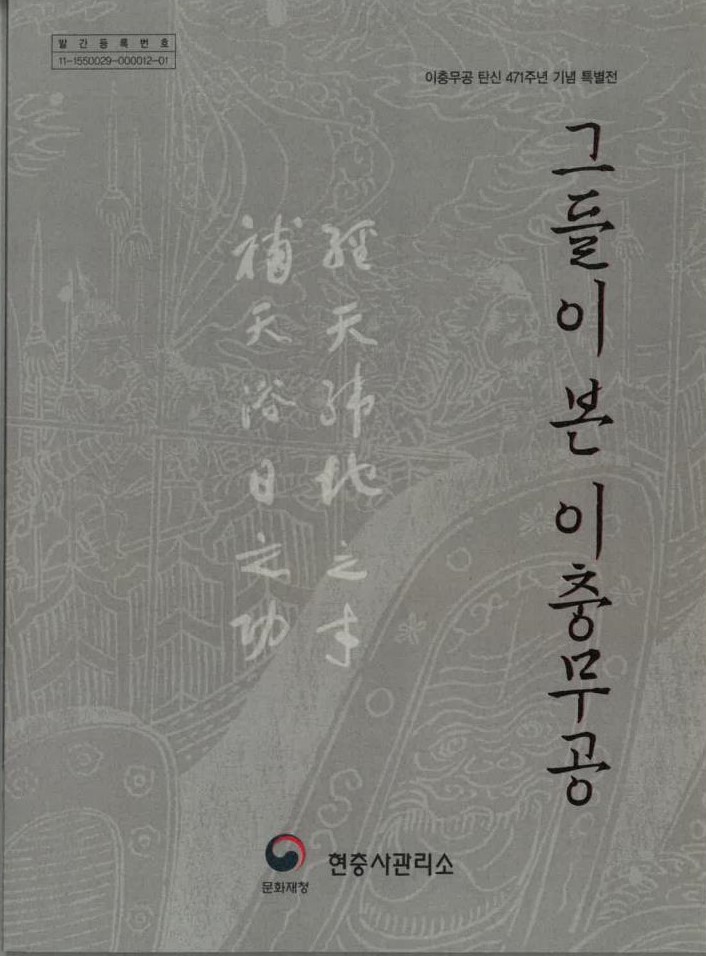 발간등록번호
11-1550029-000012-01
이충무공 탄신 471주년 기념 특별전
그들이 본 이충무공
經天緯地之才
補天浴日之功
문화재청
현충사관리소